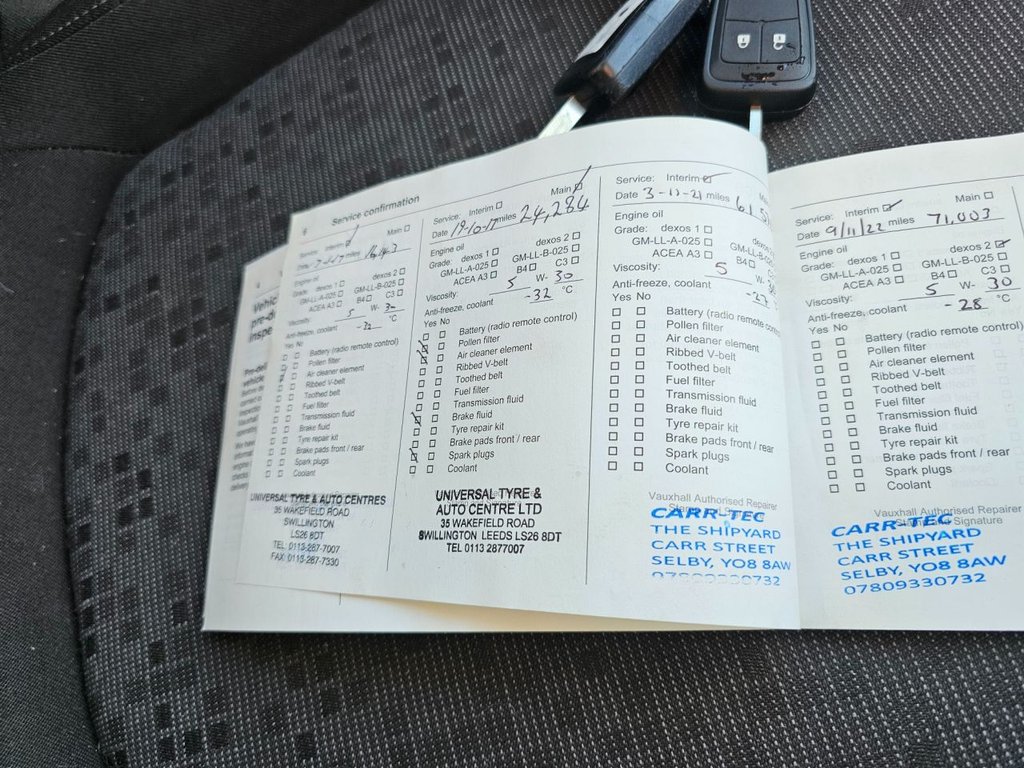 6 Service confirmation
Service: Interim
Main
Date miles
Engine oil
Grade: dexos 1 dexos 2
GM-LL-A-025 GM-LL-B-025
ACEA A3 B4 C3
Viscosity: 5 W- 30
Anti-freeze, coolant °C
Yes No
Battery (radio remote control)
Pollen filter
Air cleaner element
Ribbed V-belt
Toothed belt
Fuel filter
Transmission fluid
Brake fluid
Tyre repair kit
Brake pads front / rear
Spark plugs
Coolant
UNIVERSAL TYRE & AUTO CENTRES
35 WAKEFIELD ROAD
SWILLINGTON
LS26 8DT
TEL: 0113-287-7007
FAX: 0113-287-7330
Service: Interim Main
Date 19-10-17 miles 24,284
Engine oil
Grade: dexos 1 dexos 2
GM-LL-A-025 GM-LL-B-025
ACEA A3 B4 C3
Viscosity: 5 W- 30
Anti-freeze, coolant -32 °C
Yes No
Battery (radio remote control)
Pollen filter
Air cleaner element
Ribbed V-belt
Toothed belt
Fuel filter
Transmission fluid
Brake fluid
Tyre repair kit
Brake pads front / rear
Spark plugs
Coolant
UNIVERSAL TYRE &
AUTO CENTRE LTD
35 WAKEFIELD ROAD
SWILLINGTON LEEDS LS26 8DT
TEL 0113 2877007
Service: Interim
Date 3-11-21 miles
Engine oil
Grade: dexos 1
GM-LL-A-025 GM-LL-B
ACEA A3 B4
Viscosity: 5 W-
Anti-freeze, coolant
Yes No
Battery (radio remote
Pollen filter
Air cleaner element
Ribbed V-belt
Toothed belt
Fuel filter
Transmission fluid
Brake fluid
Tyre repair kit
Brake pads front / rear
Spark plugs
Coolant
Vauxhall Authorised Repairer
CARR-TEC
THE SHIPYARD
CARR STREET
SELBY, YO8 8AW
07809330732
Service: Interim Main
Date 9/11/22 miles 71,003
Engine oil
Grade: dexos 1 dexos 2
GM-LL-A-025 GM-LL-B-025
ACEA A3 B4 C3
Viscosity: 5 W- 30
Anti-freeze, coolant -28 °C
Yes No
Battery (radio remote control)
Pollen filter
Air cleaner element
Ribbed V-belt
Toothed belt
Fuel filter
Transmission fluid
Brake fluid
Tyre repair kit
Brake pads front / rear
Spark plugs
Coolant
Vauxhall Authorised Repairer
Signature
CARR-TEC
THE SHIPYARD
CARR STREET
SELBY, YO8 8AW
07809330732